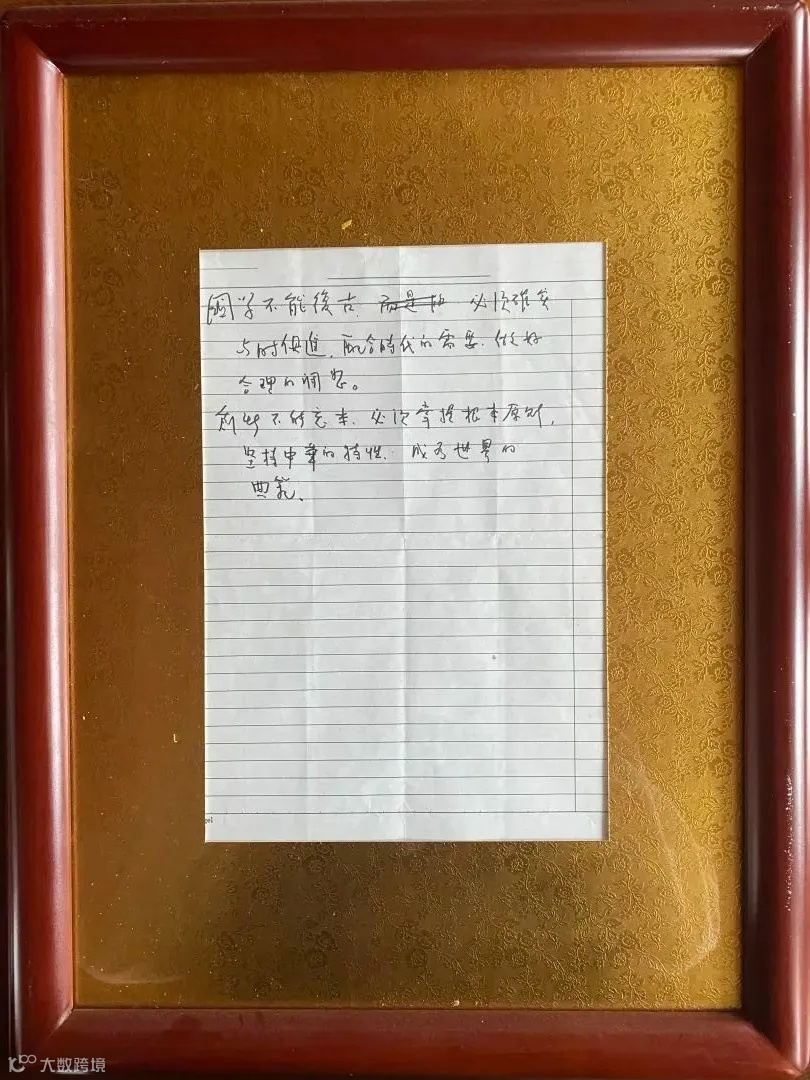 國学不能復古，而是他 必须確实
与时俱進，配合時代的需要，做好
合理的调整。
創新不能忘本，必须掌握根本原则，
坚持中華的特性，成为世界的
典範、
gel
大数跨境